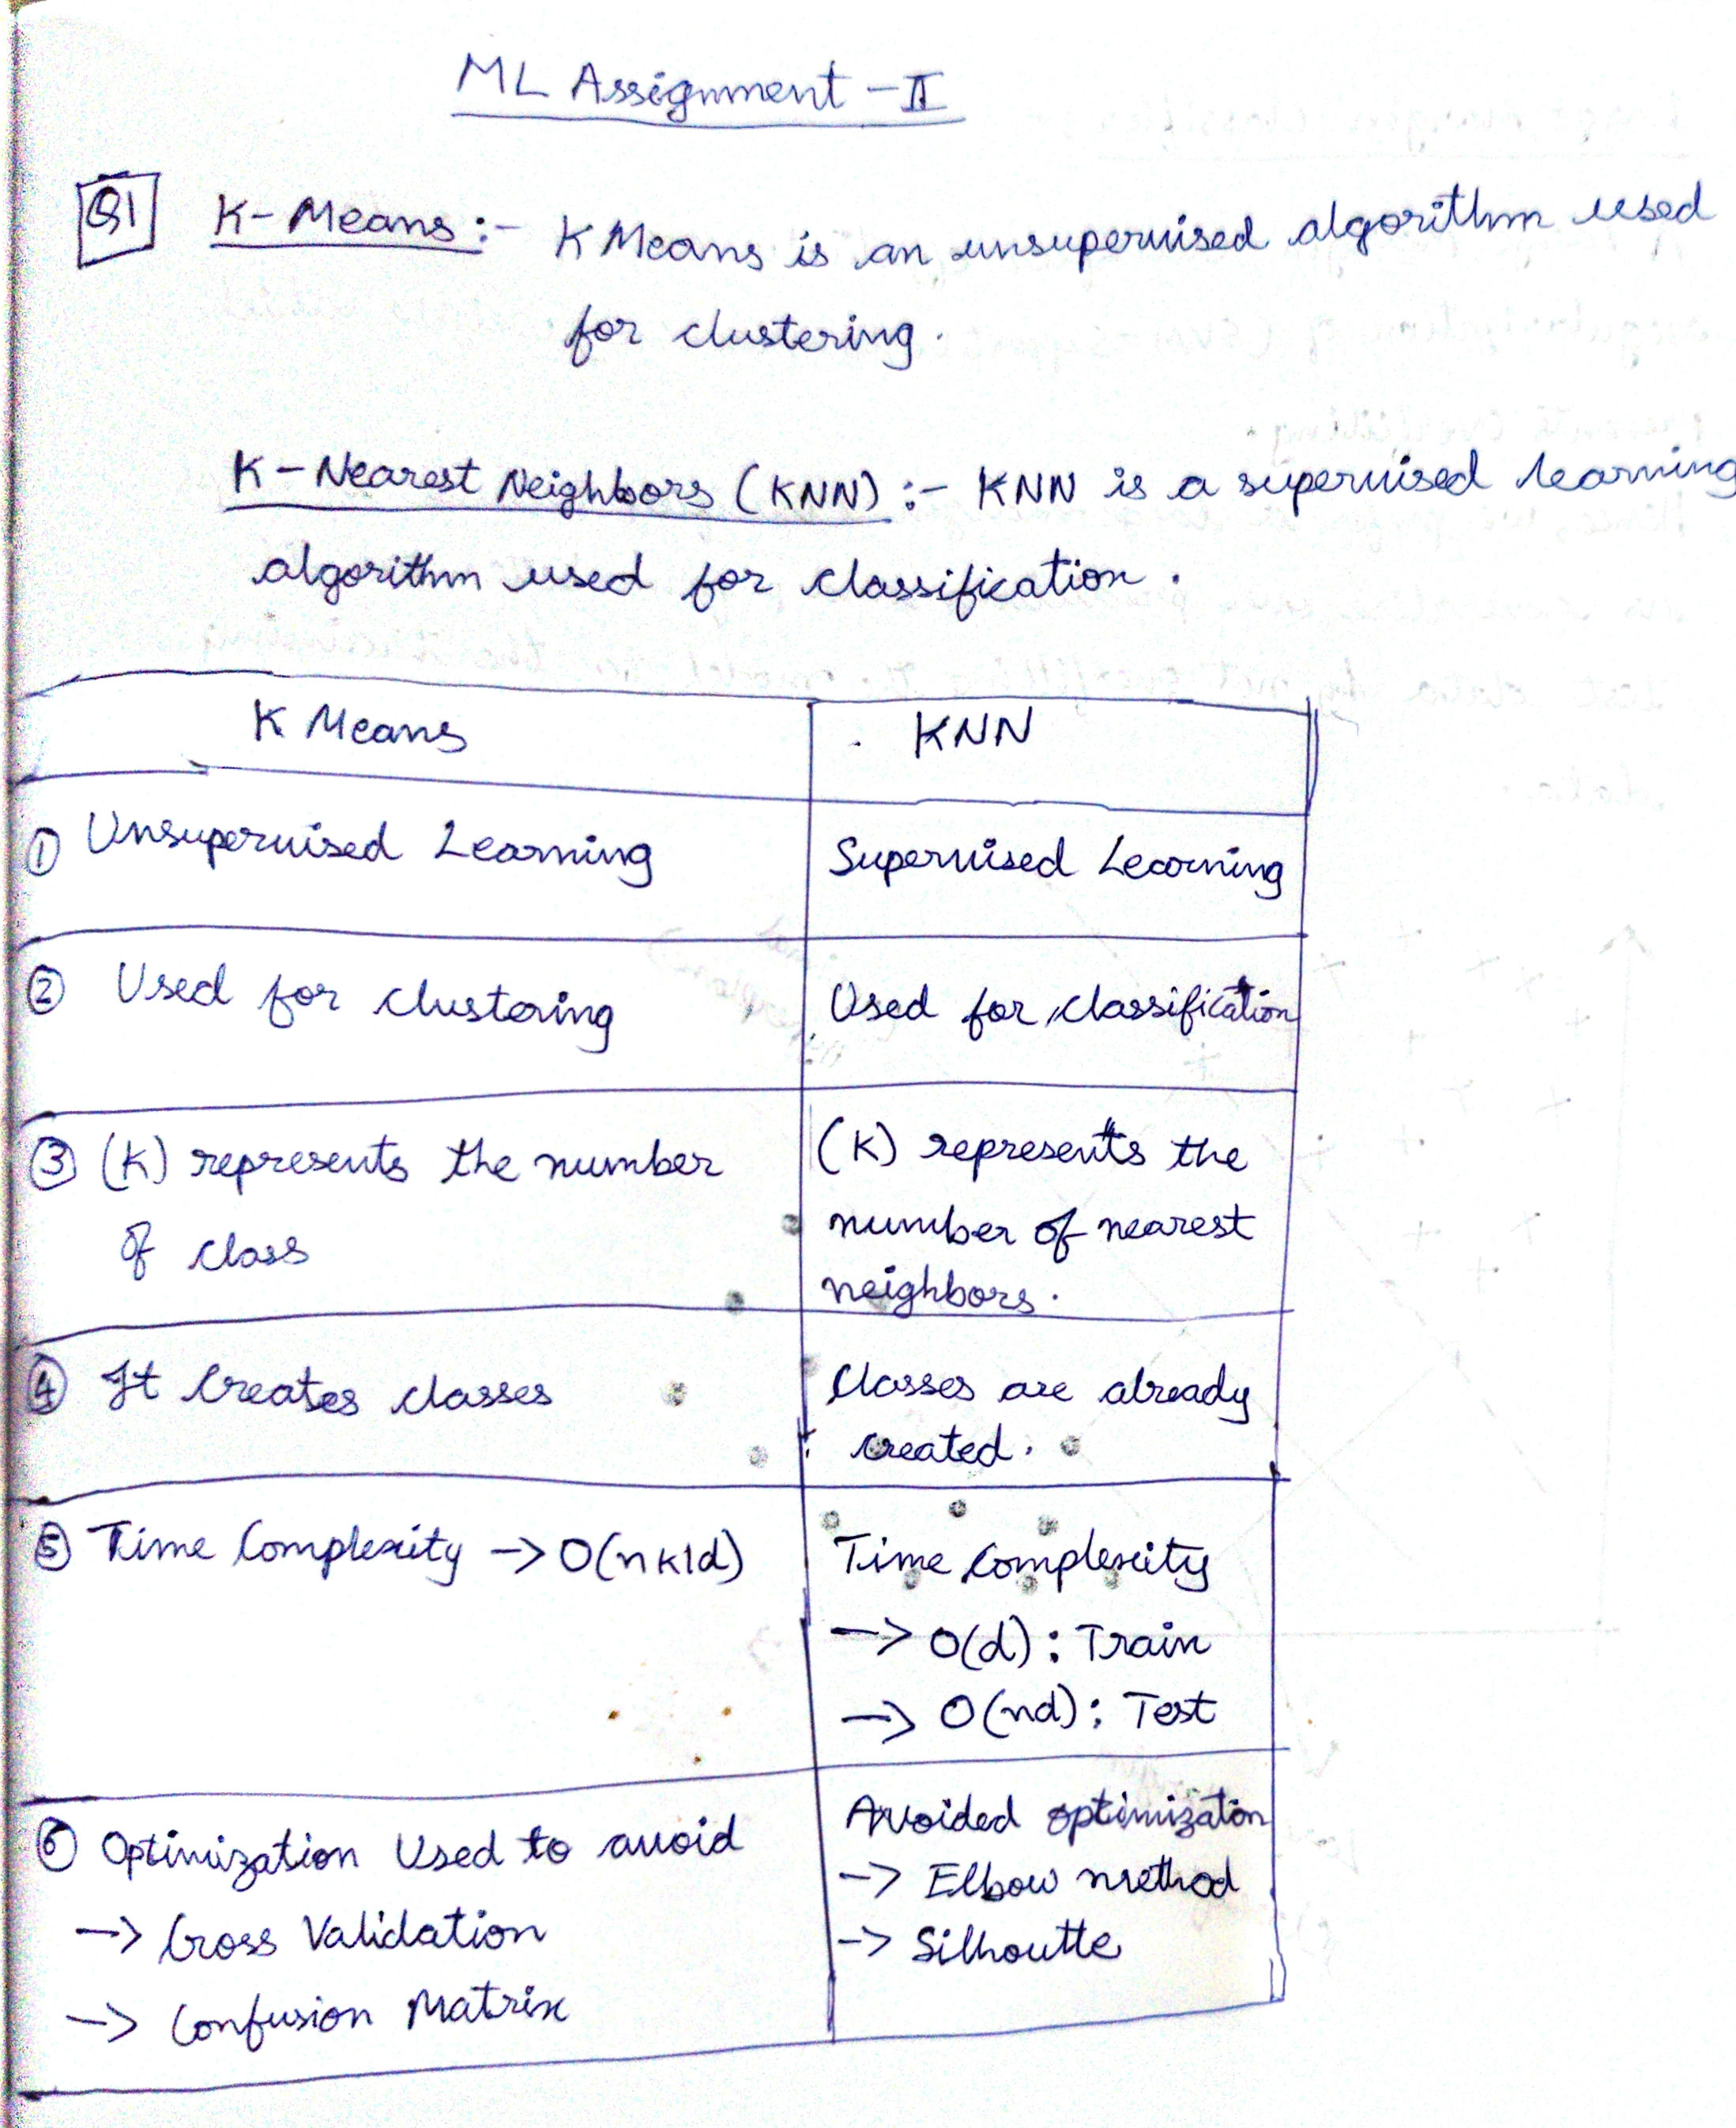 ML Assignment - II
Q1 K-Means :- K Means is an unsupervised algorithm used
for clustering.
K-Nearest Neighbors (KNN) :- KNN is a supervised learning
algorithm used for classification.
K Means
KNN
① Unsupervised Learning
Supervised Learning
② Used for clustering
Used for classification
③ (K) represents the number
of class
(K) represents the
number of nearest
neighbors.
④ It creates classes
Classes are already
created.
⑤ Time Complexity -> O(nKId)
Time Complexity
-> O(d) : Train
-> O(nd) : Test
⑥ Optimization Used to avoid
-> Cross Validation
-> Confusion Matrix
Avoided optimizaton
-> Elbow method
-> Silhoutte